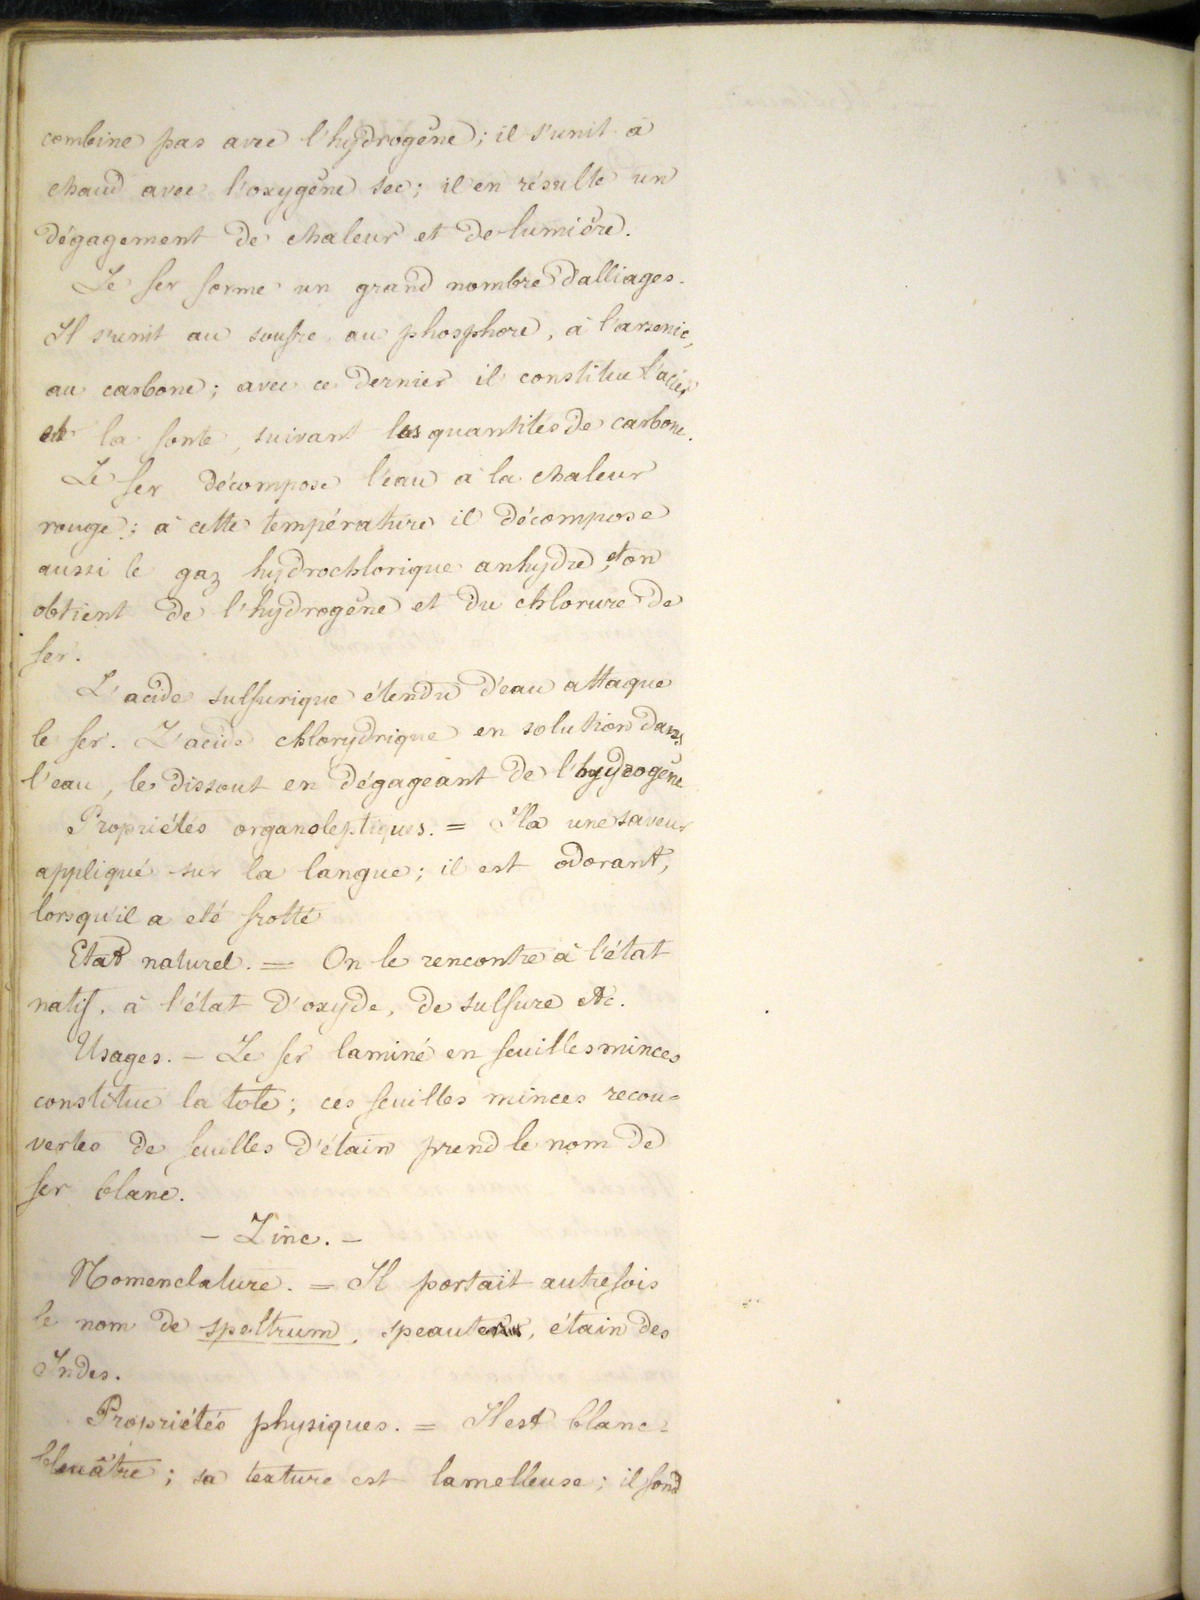 combine pas avec l'hydrogène; il s'unit à
chaud avec l'oxygène sec; il en résulte un
dégagement de chaleur et de lumière.
Le fer forme un grand nombre d'alliages.
Il s'unit au soufre, au phosphore, à l'arsenic,
au carbone; avec ce dernier il constitue l'acier
et la fonte, suivant les quantités de carbone.
Le fer décompose l'eau à la chaleur
rouge; à cette température il décompose
aussi le gaz hydrochlorique anhydre, et on
obtient de l'hydrogène et du chlorure de
fer.
L'acide sulfurique étendu d'eau attaque
le fer. L'acide chlorydrique en solution dans
l'eau, le dissout en dégageant de l'hydrogène
Propriétés organoleptiques. = Il a une saveur
appliqué sur la langue; il est odorant,
lorsqu'il a eté frotté
Etat naturel. = On le rencontre à l'état
natif, à l'état d'oxyde, de sulfure etc.
Usages. – Le fer laminé en feuilles minces
constitue la tole; ces feuilles minces recou=
vertes de feuilles d'étain prend le nom de
fer blanc.
– Zinc. –
Nomenclature. = Il portait autrefois
le nom de speltrum, speauter, étain des
Indes.
Propriétés physiques. = Il est blanc=
bleuâtre; sa texture est lamelleuse; il fond